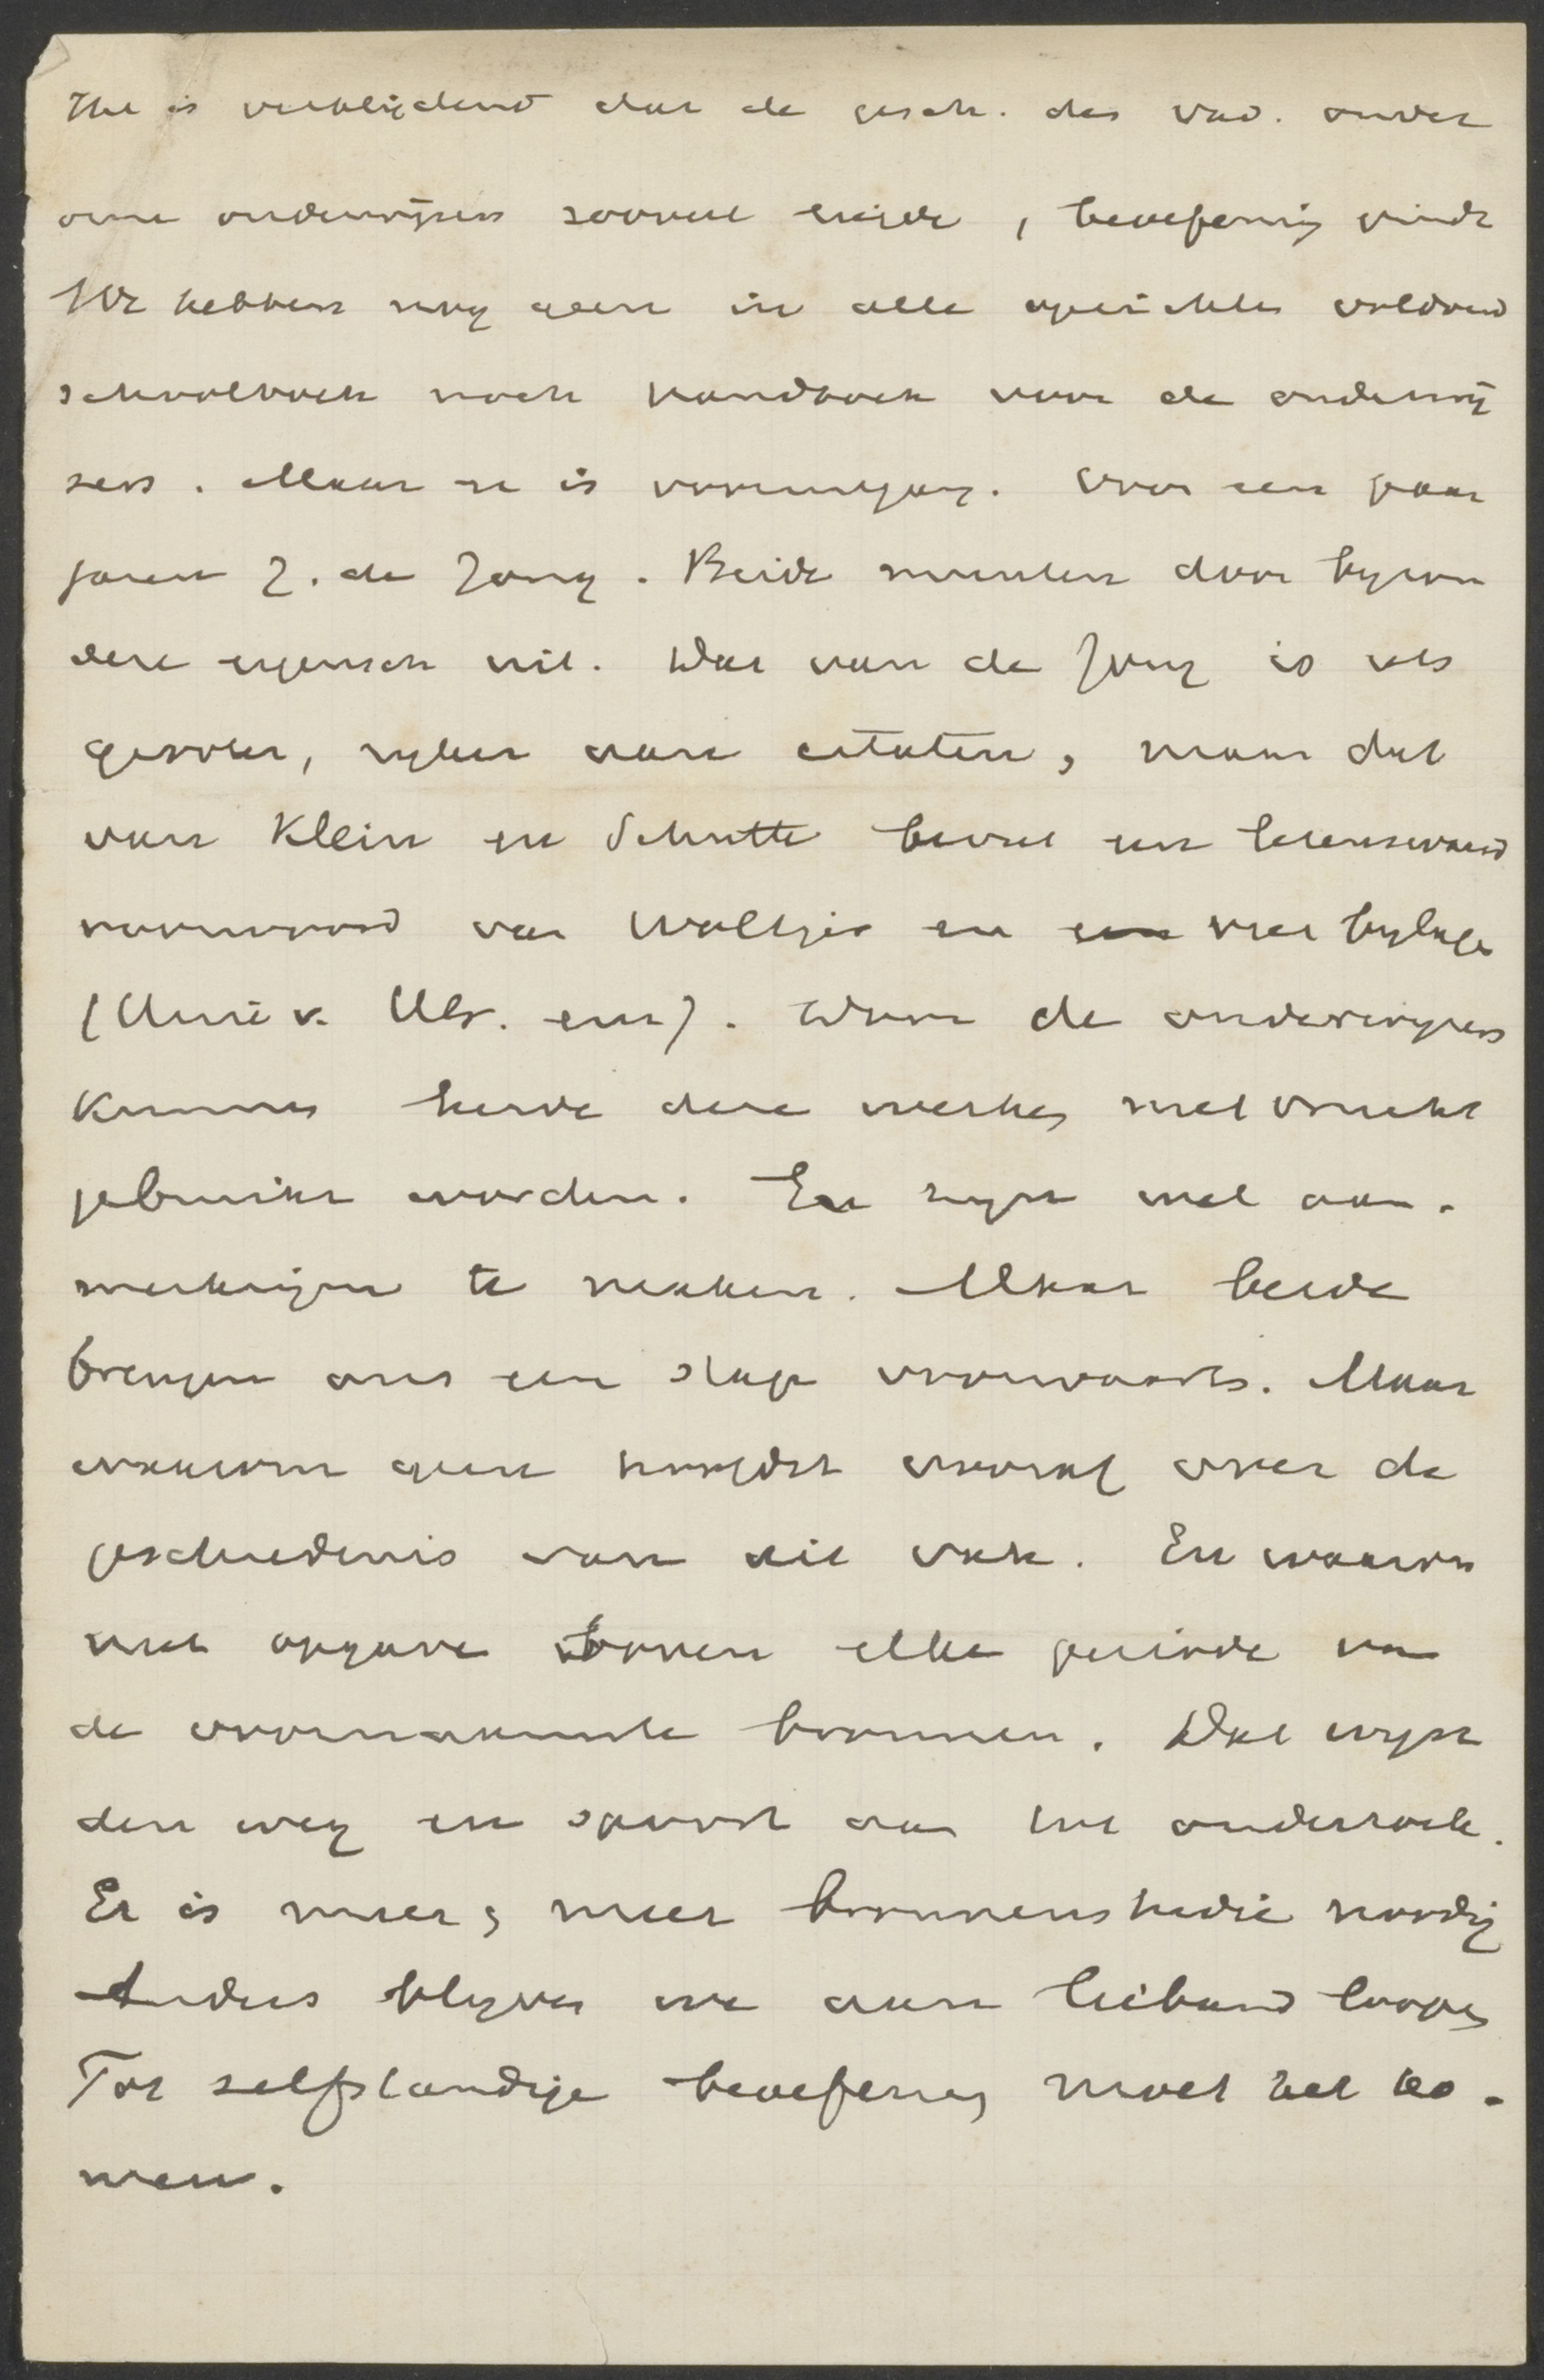 Het is verblijdend dat de gesch. des vad. onder
onze onderwijzers zooveel liefde, beoefening vindt
We hebben nog geen in alle opzichten voldoend
schoolboek noch handboek voor de onderwij
zers. Maar er is vooruitgang. Voor een paar
jaren J. de Jong. Beide munten door byzon
dere eigensch uit. Dat van de Jong is
grooter, ryker aan citaten, maar dat
van Klein en Schutte bevat een lezenswaard
voorwoord van Woltjer en een vier bylage
(Unie v. Utr. enz). Door de onderwyzers
kunnen beide deze werken met vrucht
gebruikt worden. Er zyn wel aan-
merkingen te maken. Maar beide
brengen ons een stap voorwaarts. Maar
waarom geen hoofdst vooraf over de
geschiedenis van dit vak. En waarom
niet opgave boven elke periode van
de voornaamste bronnen. Dat wyst
den weg en spoort aan tot onderzoek.
Er is meer, meer bronnenstudie noodig
Anders blyven we aan leiband loopen
Tot zelfstandige beoefening moet het ko-
men.